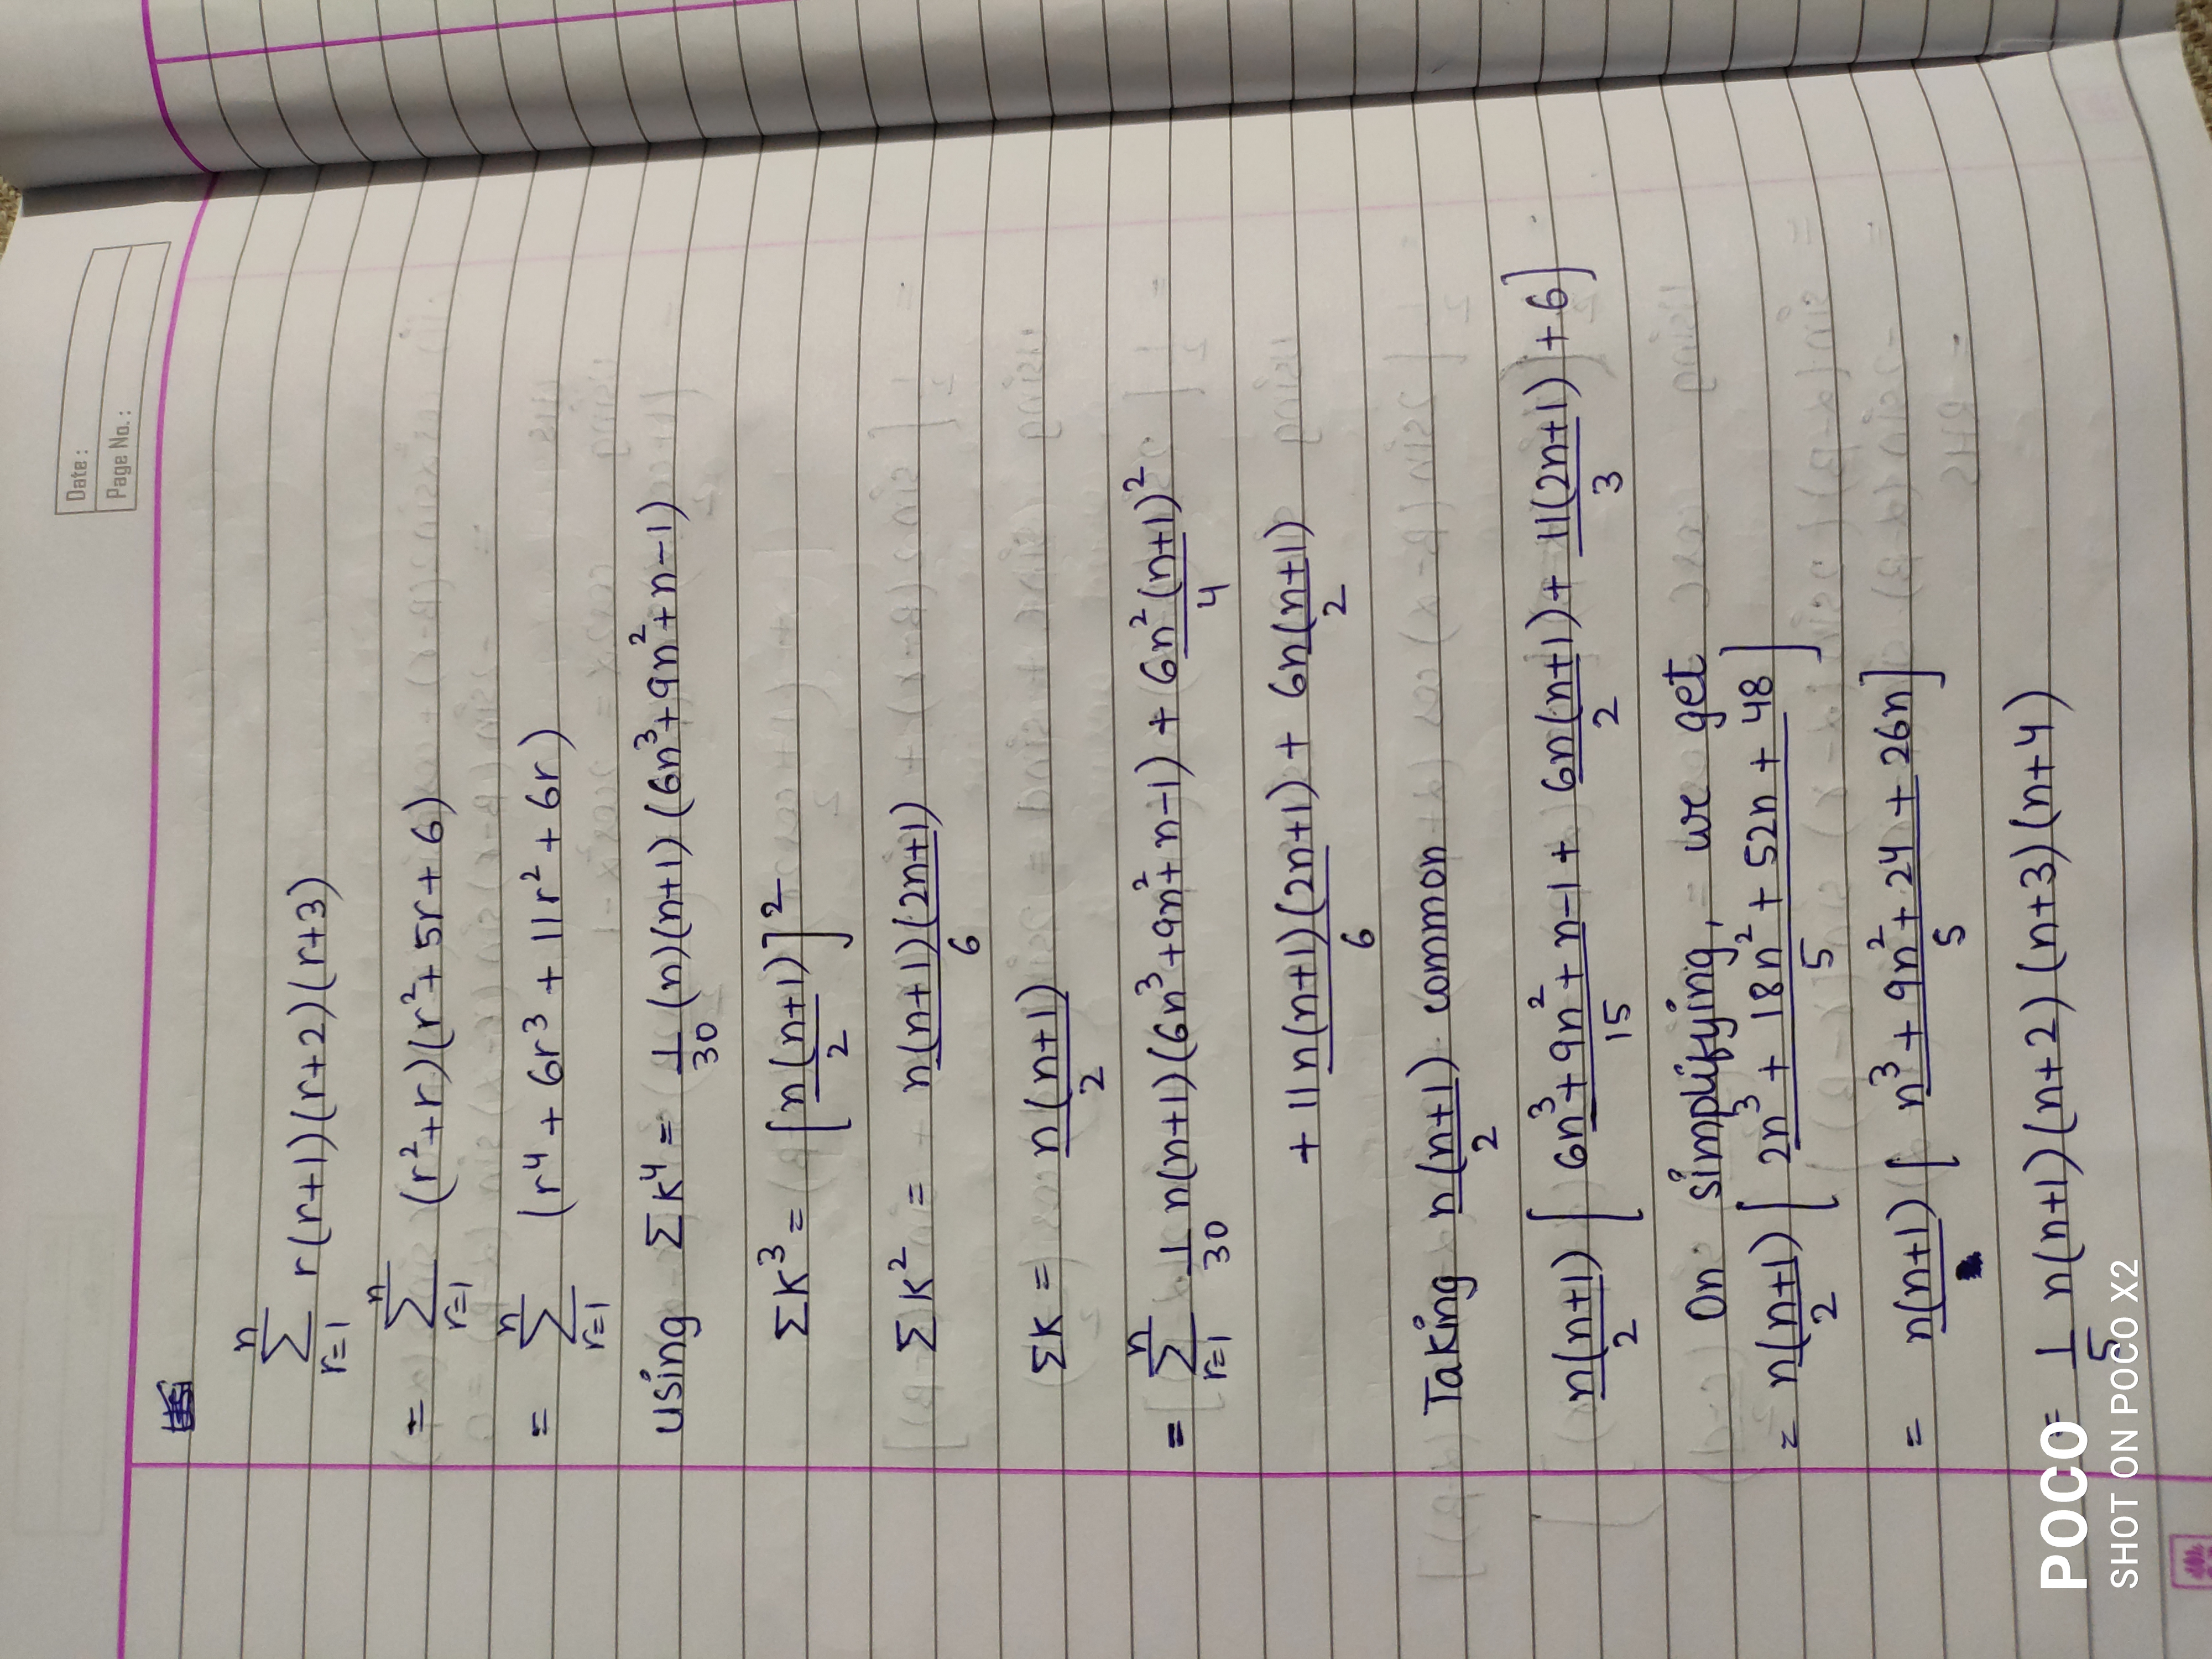 Date :
Page No. :
n
∑ r(r+1)(r+2)(r+3)
r=1
= n∑r=1 (r²+r)(r²+5r+6)
= n∑r=1 (r⁴ + 6r³ + 11r² + 6r)
using ∑K⁴ = 1/30 (n)(n+1)(6n³+9n²+n-1)
∑K³ = [n(n+1)/2]²
∑K² = n(n+1)(2n+1)/6
∑K = n(n+1)/2
= n∑r=1 1/30 n(n+1)(6n³+9n²+n-1) + 6n²(n+1)²/4
+ 11n(n+1)(2n+1)/6 + 6n(n+1)/2
Taking n(n+1)/2 common
n(n+1)/2 [6n³+9n²+n-1/15 + 6n(n+1)/2 + 11(2n+1)/3 + 6]
On simplifying, we get
= n(n+1)/2 [2n³ + 18n² + 52n + 48/5]
= n(n+1) [n³ + 9n² + 24 + 26n/5]
= 1/5 n(n+1)(n+2)(n+3)(n+4)
POCO
SHOT ON POCO X2